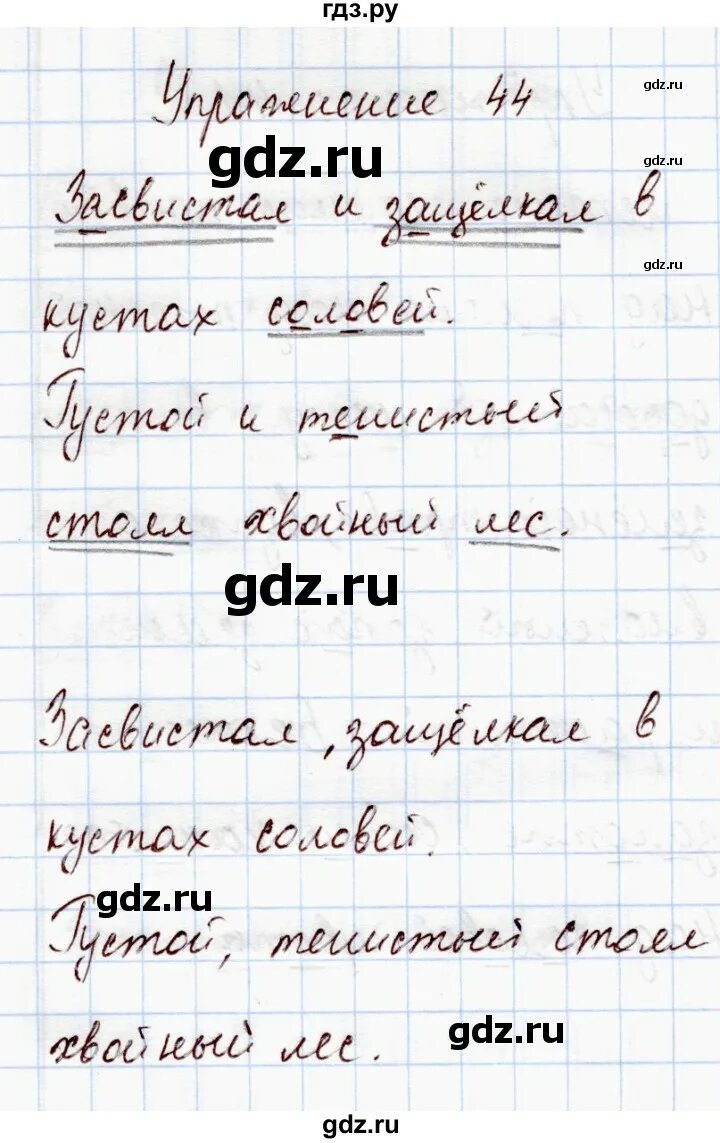 гдз.ру
Упражнение 44
gdz.ru
gdz.ru
gdz.ru
Засвистал и защёлкал в
gdz.ru
кустах соловей.
Густой и тенистый
стоял хвойный лес.
gdz.ru
Засвистал, защёлкал в
кустах соловей.
gdz.ru
Густой, тенистый стоял
хвойный лес.
gdz.ru
gdz.ru